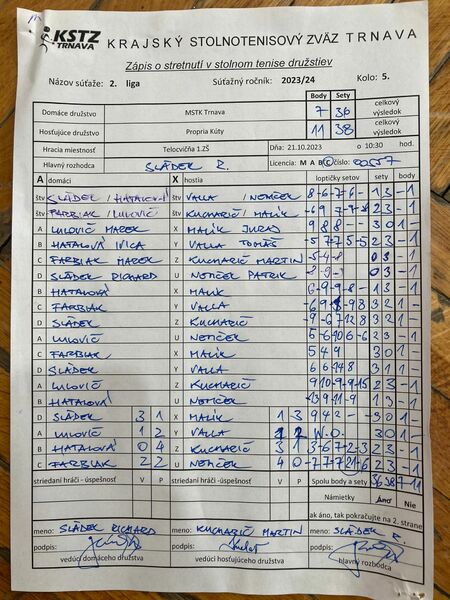 KSTZ TRNAVA KRAJSKÝ STOLNOTENISOVÝ ZVÄZ TRNAVA
Zápis o stretnutí v stolnom tenise družstiev
Názov súťaže: 2. liga Súťažný ročník: 2023/24 Kolo: 5.
Body Sety
Domáce družstvo MSTK Trnava 7 36 celkový výsledok
Hosťujúce družstvo Propria Kúty 11 38 celkový výsledok
Hracia miestnosť Telocvičňa 1.ZŠ Dňa: 21.10.2023 o 10:30 hod.
Hlavný rozhodca SLÁDEK R. Licencia: M A B C číslo: 00557
A domáci X hostia loptičky setov sety body
štv SLÁDEK / HATALOVÁ štv VALLA / NETÍČEK 8 -6 -7 -6 - 1 3 - 1
štv FARBIAK / LULOVIČ štv KUCHARIČ / MALÍK 2 3 - 1
A LULOVIČ MAREK X MALÍK JURAJ 9 8 8 - - 3 0 1 -
B HATALOVÁ IVICA Y VALLA TOMÁŠ -5 7 7 -5 -5 2 3 - 1
C FARBIAK MAREK Z KUCHARIČ MARTIN -5 -4 -8 0 3 - 1
D SLÁDEK RICHARD U NETÍČEK PATRIK 0 3 - 1
B HATALOVÁ X MALÍK 1 3 - 1
C FARBIAK Y VALLA 3 2 1 -
D SLÁDEK Z KUCHARIČ 3 2 1 -
A LULOVIČ U NETÍČEK 2 3 - 1
C FARBIAK X MALÍK 5 4 9 3 0 1 -
D SLÁDEK Y VALLA 3 1 1 -
A LULOVIČ Z KUCHARIČ 2 3 - 1
B HATALOVÁ U NETÍČEK
D SLÁDEK 3 1 X MALÍK 1 3 9 4 2 - - 3 0 1 -
A LULOVIČ Y VALLA W.O. 3 0 1 -
B HATALOVÁ 0 4 Z KUCHARIČ 3 1 2 3 - 1
C FARBIAK 2 2 U NETÍČEK 4 0 2 3 - 1
striedaní hráči - úspešnosť V P striedaní hráči - úspešnosť V P Spolu body a sety 36 38 7 11
Námietky Áno Nie
ak áno, tak pokračujte na 2. strane
meno: SLÁDEK RICHARD meno: KUCHARIČ MARTIN meno: SLÁDEK R.
podpis: podpis: podpis:
vedúci domáceho družstva vedúci hosťujúceho družstva hlavný rozhodca